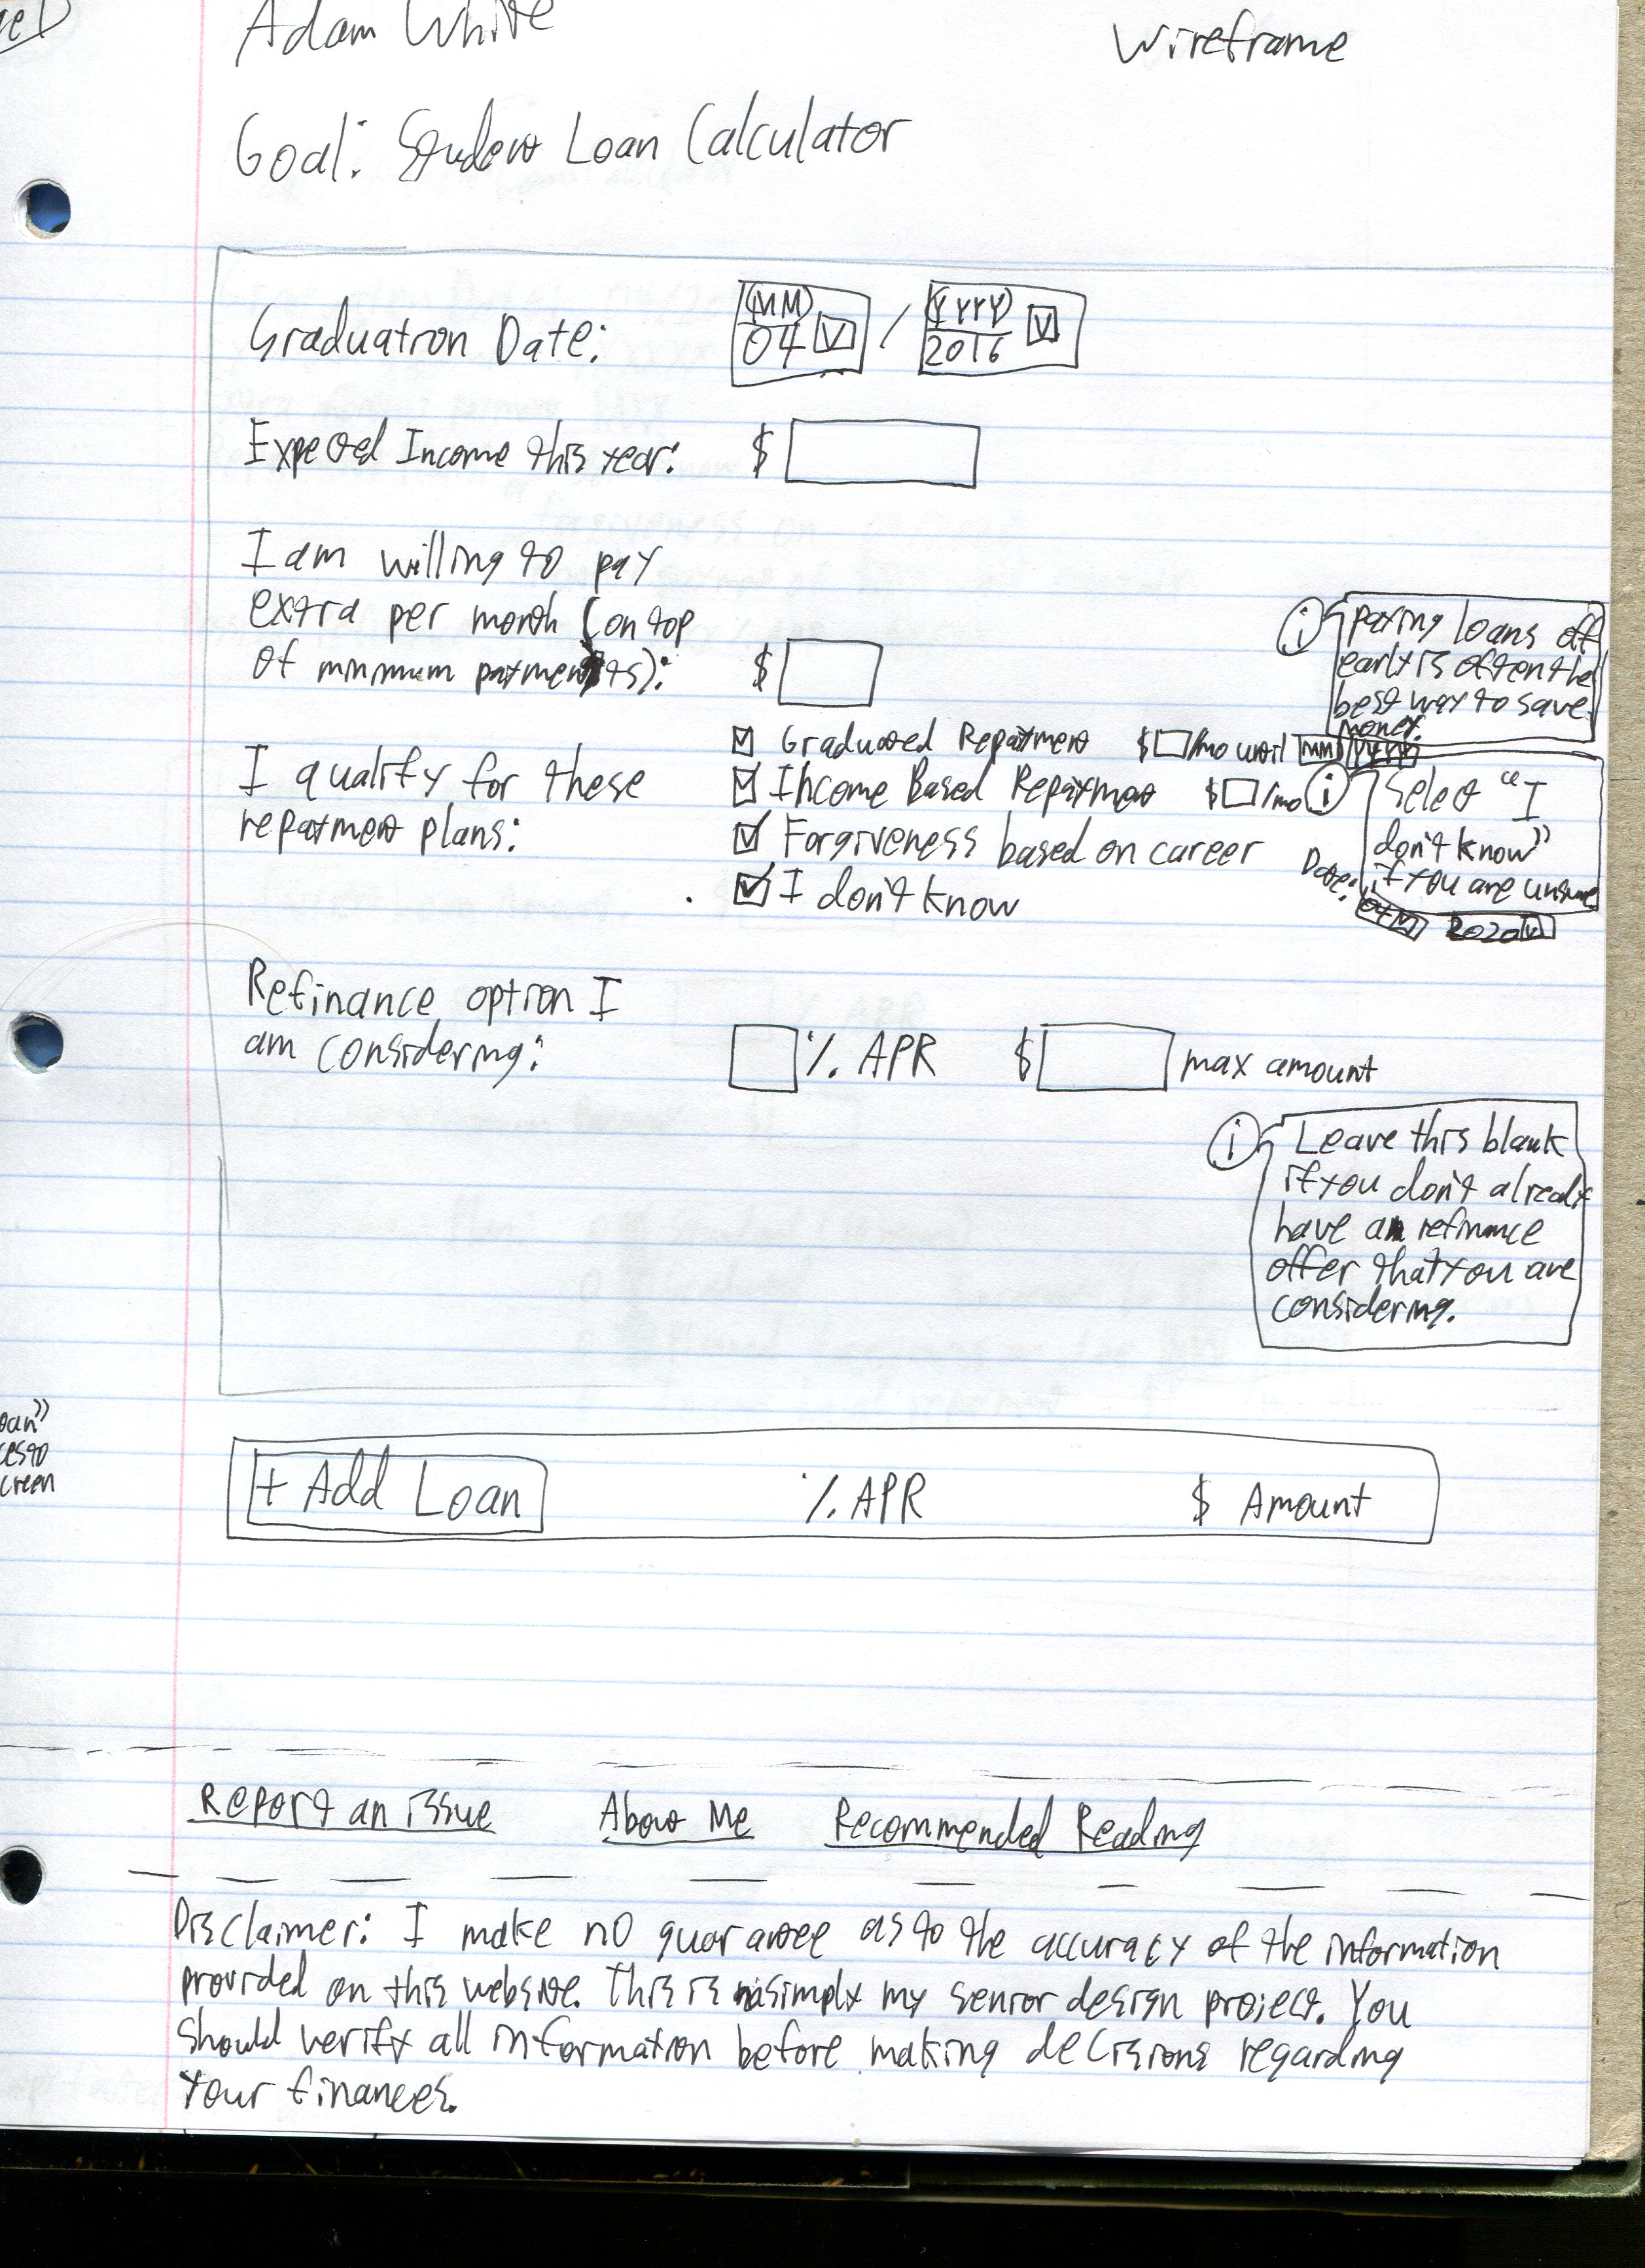 Adam White
Wireframe
Goal: Student Loan Calculator
Graduation Date:
(MM)
04 V / (YYYY)
2016 V
Expected Income this year: $
I am willing to pay
extra per month (on top
of minimum payments): $
i Paying loans off
early is often the
best way to save
money.
I qualify for these
repayment plans:
Graduated Repayment $ /mo until MM YYYY
Income Based Repayment $ /mo i
Forgiveness based on career
Date: 04 V 2020 V
I don't know
Select "I
don't know"
if you are unsure
Refinance option I
am considering: % APR $ max amount
i Leave this blank
if you don't already
have a refinance
offer that you are
considering.
oan"
creen
+ Add Loan % APR $ Amount
Report an issue About Me Recommended Reading
Disclaimer: I make no guarantee as to the accuracy of the information
provided on this website. This is simply my senior design project. You
should verify all information before making decisions regarding
your finances.